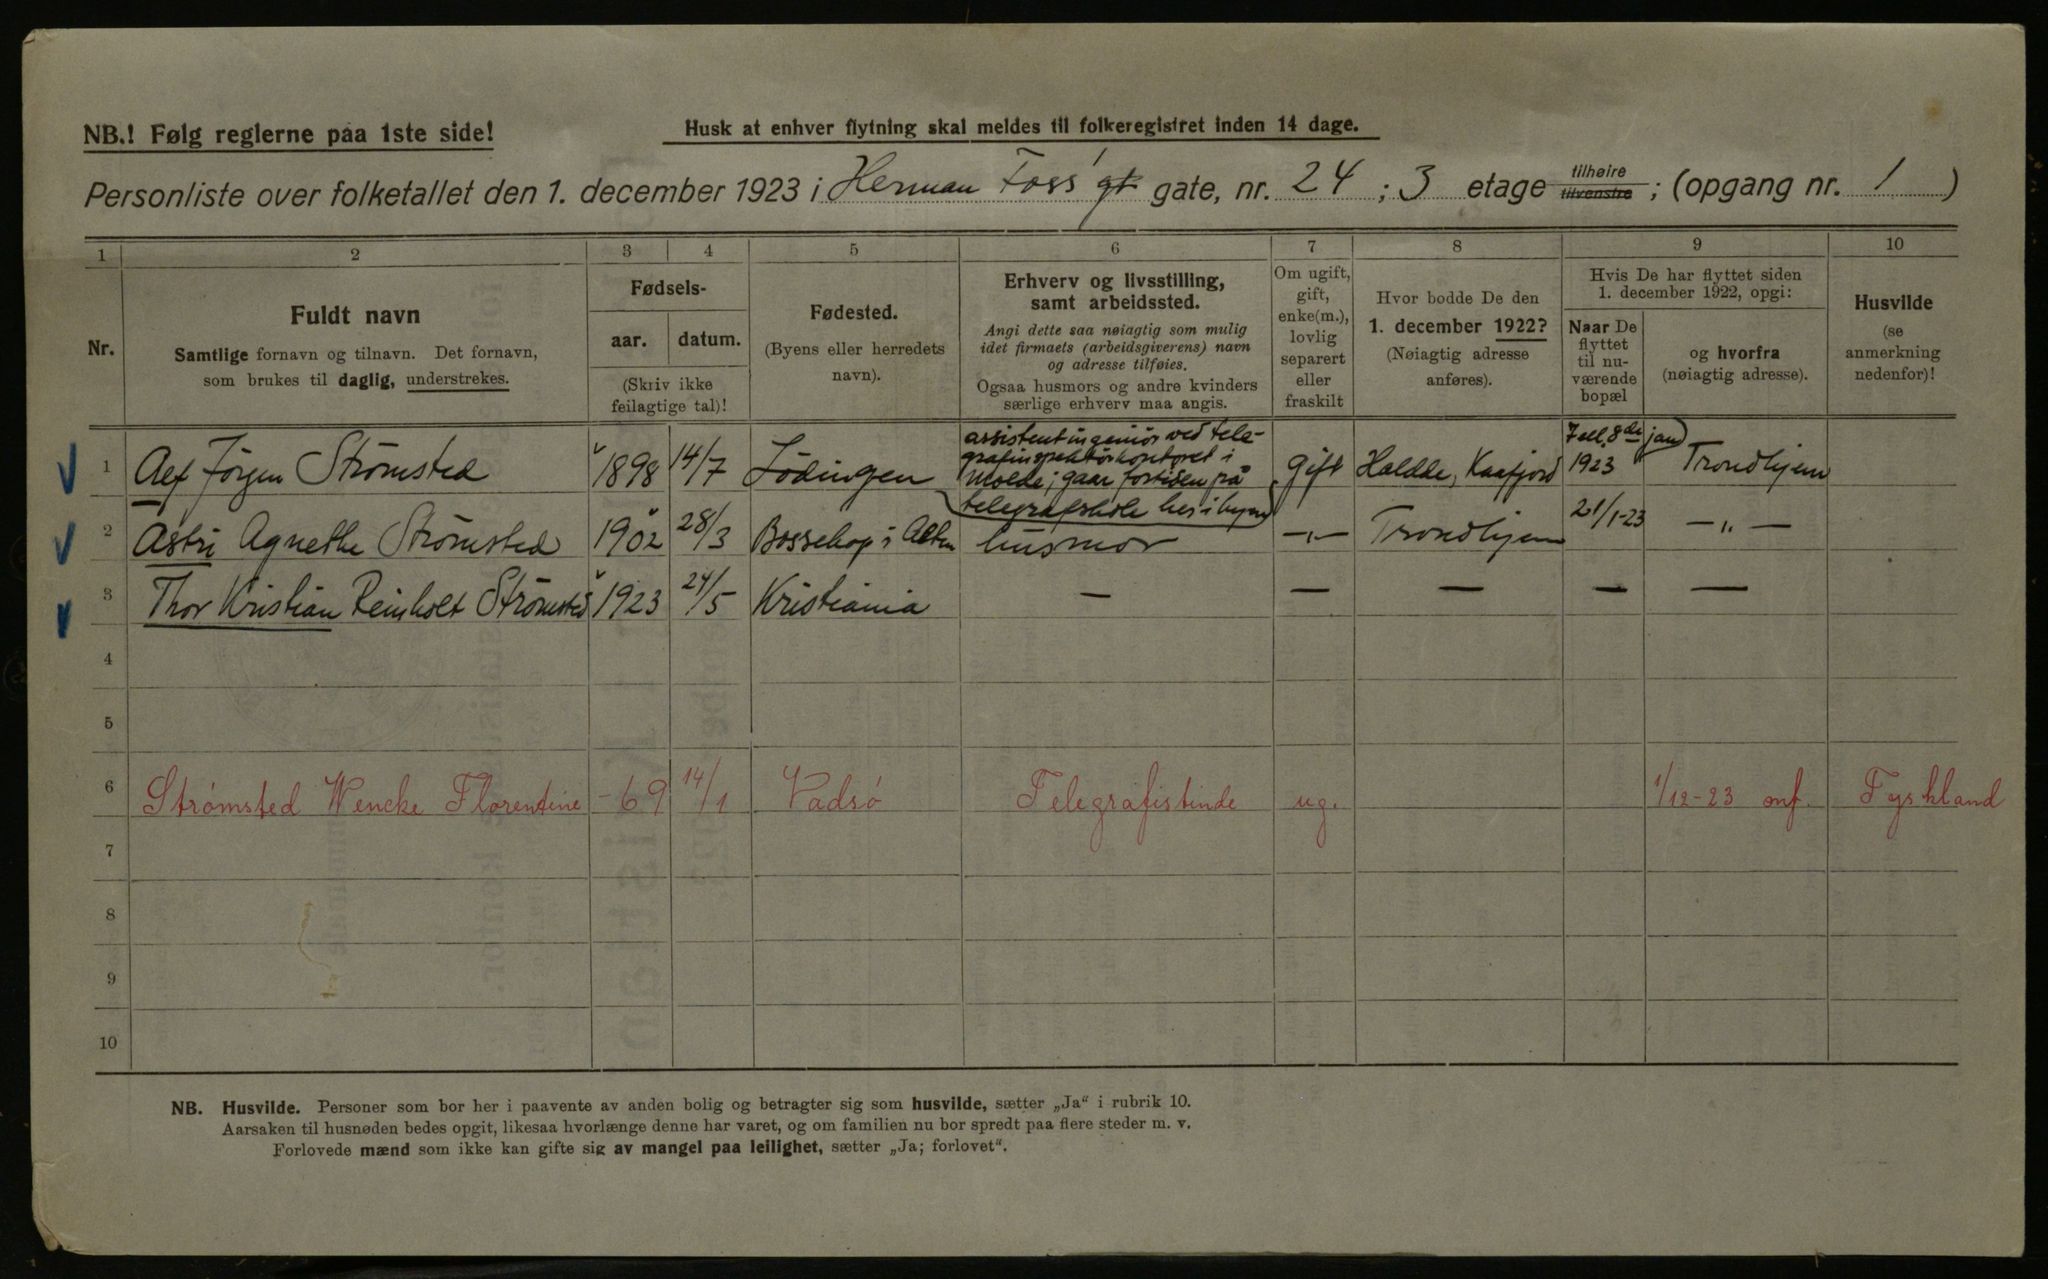 NB.! Følg reglerne paa 1ste side!
Husk at enhver flytning skal meldes til folkeregistret inden 14 dage.
Personliste over folketallet den 1. december 1923 i Herman Foss' gt gate, nr. 24 ; 3 etage tilhøire tilvenstre ; (opgang nr. 1 )
1 2 3 4 5 6 7 8 9 10
Nr.
Fuldt navn
Samtlige fornavn og tilnavn. Det fornavn,
som brukes til daglig, understrekes.
Fødsels-
aar. datum.
(Skriv ikke
feilagtige tal)!
Fødested.
(Byens eller herredets
navn).
Erhverv og livsstilling,
samt arbeidssted.
Angi dette saa nøiagtig som mulig
idet firmaets (arbeidsgiverens) navn
og adresse tilføies.
Ogsaa husmors og andre kvinders
særlige erhverv maa angis.
Om ugift,
gift,
enke(m.),
lovlig
separert
eller
fraskilt
Hvor bodde De den
1. december 1922?
(Nøiagtig adresse
anføres).
Hvis De har flyttet siden
1. december 1922, opgi:
Naar De
flyttet
til nu-
værende
bopæl
og hvorfra
(nøiagtig adresse).
Husvilde
(se
anmerkning
nedenfor)!
1 Alf Jørgen Strømsted 1898 14/7 Lødingen assistentingeniør ved tele-
grafinspektørkontoret i
Molde; gaar fortiden på
telegrafskole her i byen
Gift Haldde, Kaafjord 7 ell. 8de jan 1923 Trondhjem
2 Astri Agnethe Strømsted 1902 28/3 Bossekop i Alten husmor —„— Trondhjem 21/1-23 —„—
3 Thor Kristian Reinholt Strømsted 1923 24/5 Kristiania — — — — —
4
5
6 Strømsted Wencke Florentine -69 14/1 Vadsø Telegrafistinde ug. 1/12-23 omf. Tyskland
7
8
9
10
NB. Husvilde. Personer som bor her i paavente av anden bolig og betragter sig som husvilde, sætter „Ja" i rubrik 10.
Aarsaken til husnøden bedes opgit, likesaa hvorlænge denne har varet, og om familien nu bor spredt paa flere steder m. v.
Forlovede mænd som ikke kan gifte sig av mangel paa leilighet, sætter „Ja; forlovet".